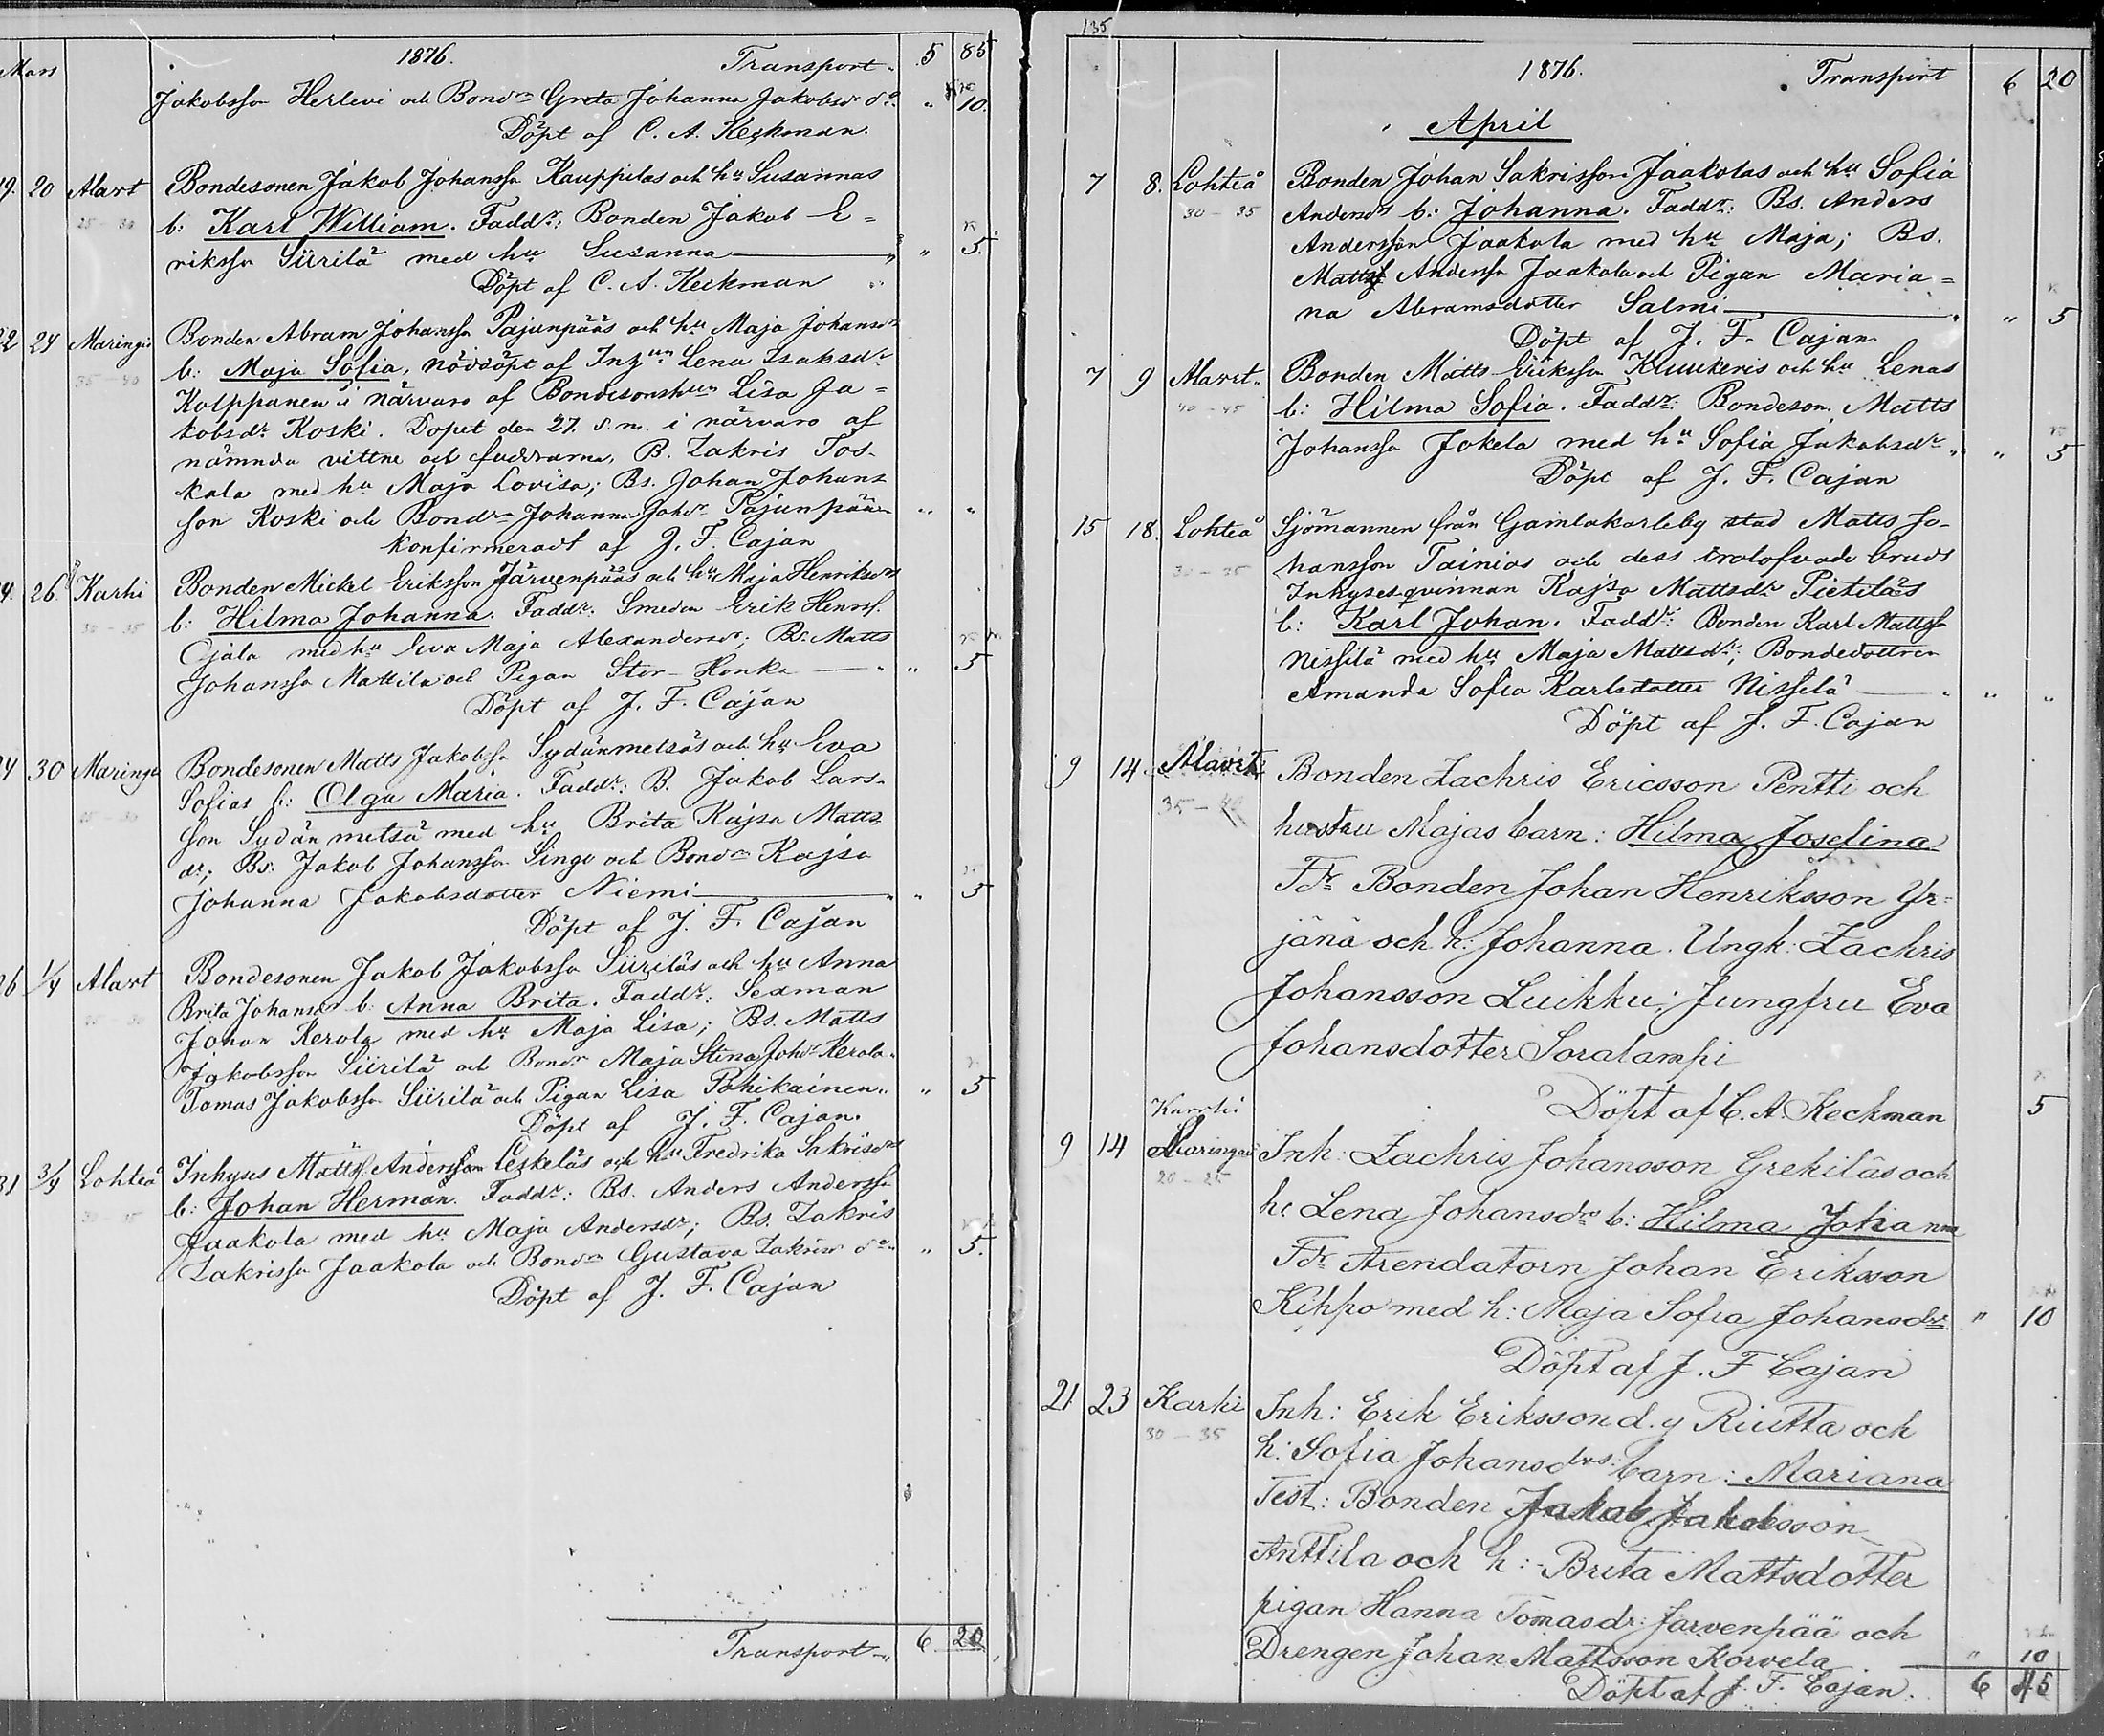 Mars
1876. Transport 5 85
Jakobsson Herlevi och Bondn Greta Johanna Jakobsdr do. " 10.
Döpt af C. A. Keckman
19. 20 Alavt Bondesonen Jakob Johanss Kauppilas och hu Susannas
25 - 30 b: Karl William. Faddr: Bonden Jakob E=
rikss Siirilä med hu Susanna " 5.
Döpt af C. A. Keckman
22 24 Maringa Bonden Abram Johanss Pajunpääs och hu Maja Johansdrs
35 - 40 b: Maja Sofia, nöddöpt af Inhn Lena Isaksdr
Kolppanen i närvaro af Bondesonshun Lisa Ja=
kobsdr Koski. Döpet den 27. d. m. i närvaro af
nämnda vittne och faddrarna, B. Zakris Tos-
kala med hu Maja Lovisa; Bs. Johan Johans-
son Koski och Bondn Johanna Johdr Pajunpää " "
konfirmeradt af J. F. Cajan
24. 26. Karhi Bonden Mickel Eriksson Järvenpääs och hu Maja Henriksdrs
30 - 35 b: Hilma Johanna. Faddr: Smeden Erik Henrss.
Ojala med hu Eva Maja Alexandersdr; Bs. Matts
Johanss Mattila och Pigan Stor-Honka " 5
Döpt af J. F. Cajan
24 30 Maringa Bondesonen Matts Jakobss Sydänmetsäs och hu Eva
25 - 30 Sofias b: Olga Maria. Faddr: B. Jakob Lars-
son Sydänmetsä med hu Brita Kajsa Matts-
dr; Bs: Jakob Johanss Singo och Bondn Kajsa
Johanna Jakobsdotter Niemi " 5
Döpt af J. F. Cajan
26 1/4 Alavt Bondesonen Jakob Jakobss Siiriläs och hu Anna
Brita Johansdrs b: Anna Brita. Faddr: Sexman
Johan Kerola med hu Maja Lisa; Bs. Matts
Jakobsson Siirilä och Bondn Maja Stina Johdr Kerola.
Tomas Jakobss Siirilä och Pigan Lisa Pahikainen " 5
Döpt af J. F. Cajan.
31 3/4 Lohteå Inhyses Matts Andersson Ceskeläs och hu Fredrika Sakrisdrs
30 - 35 b: Johan Herman. Faddr: Bs. Anders Anderss
Jaakola med hu Maja Andersdr; Bs. Zakris
Zakriss Jaakola och Bondn Gustava Zakrisdr do " 5.
Döpt af J. F. Cajan
Transport 6 20
135
1876. Transport 6 20
April
7 8. Lohteå Bonden Johan Sakrisson Jaakolas och hu Sofia
30 - 35 Andersdrs b: Johanna. Faddr: Bs. Anders
Andersson Jaakola med hu Maja; Bs.
Matts Anderss Jaakola och Pigan Maria=
na Abramsdotter Salmi " 5
Döpt af J. F. Cajan
7 9 Alavit. Bonden Matts Eriksson Kluukeris och hu Lenas
40 - 45 b: Hilma Sofia. Faddr: Bondeson. Matts
Johanss Jokela med hu Sofia Jakobsdr " 5
Döpt af J. F. Cajan
15 18. Lohteå Sjömannen från Gamlakarleby stad Matts Jo-
30 - 35 hansson Tainios och dess trolofvade bruds
Inhysesqvinnan Kajsa Mattsdr Pietiläs
b: Karl Johan. Faddr: Bonden Karl Mattss
Nissilä med hu Maja Mattsdr; Bondedottren
Amanda Sofia Karlsdotter Nissilä " "
Döpt af J. F. Cajan
9 14 Alavit Bonden Zachris Ericsson Pentti och
35 - 40 hustru Majas barn: Hilma Josefina
Fdr Bonden Johan Henriksson Yr=
jänä och h: Johanna. Ungk: Zachris
Johansson Luikku; Jungfru Eva
Johansdotter Soralampi
Döpt af C. A. Keckman 5
Karhi
9 14 Maringais Inh: Zachris Johansson Grekiläs och
20 - 25 h: Lena Johansdrs b: Hilma Johanna
Fdr Arendatorn Johan Eriksson
Kippo med h: Maja Sofia Johansdr. " 10
Döpt af J. F Cajan
21 23 Karhi Inh: Erik Eriksson d. y Riutta och
30 - 35 h: Sofia Johansdrs: barn: Mariana
Test: Bonden Jakob Jakobsson
Anttila och h: Brita Mattsdotter
pigan Hanna Tomasdr: Jarvenpää och
Drengen Johan Mattsson Korvela " 10
Döpt af J. F. Cajan. 6 45